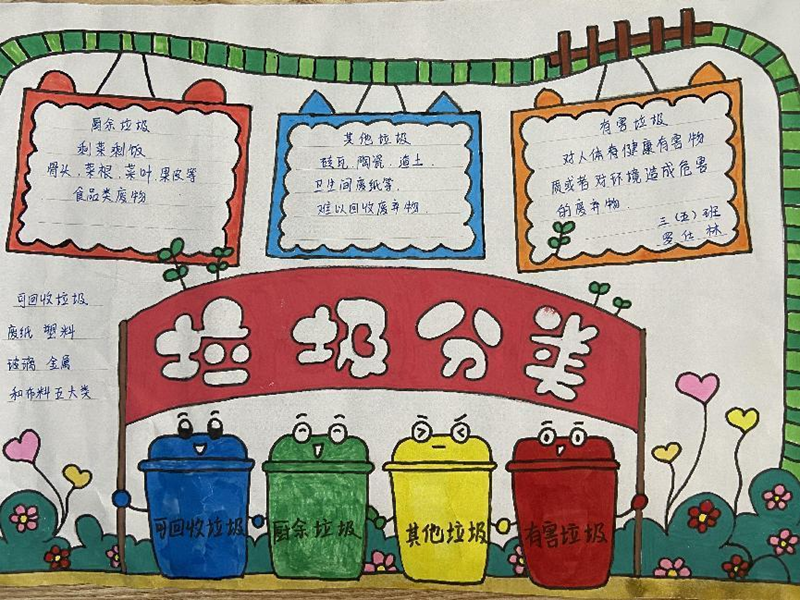 厨余垃圾
剩菜剩饭
骨头、菜根、菜叶、果皮等
食品类废物
其他垃圾
砖瓦、陶瓷、渣土、
卫生间废纸等、
难以回收废弃物、
有害垃圾
对人体有健康有害物
质或者对环境造成危害
的废弃物
三（五）班
罗仕林
可回收垃圾
废纸 塑料
玻璃 金属
和布料五大类
垃圾分类
可回收垃圾
厨余垃圾
其他垃圾
有害垃圾